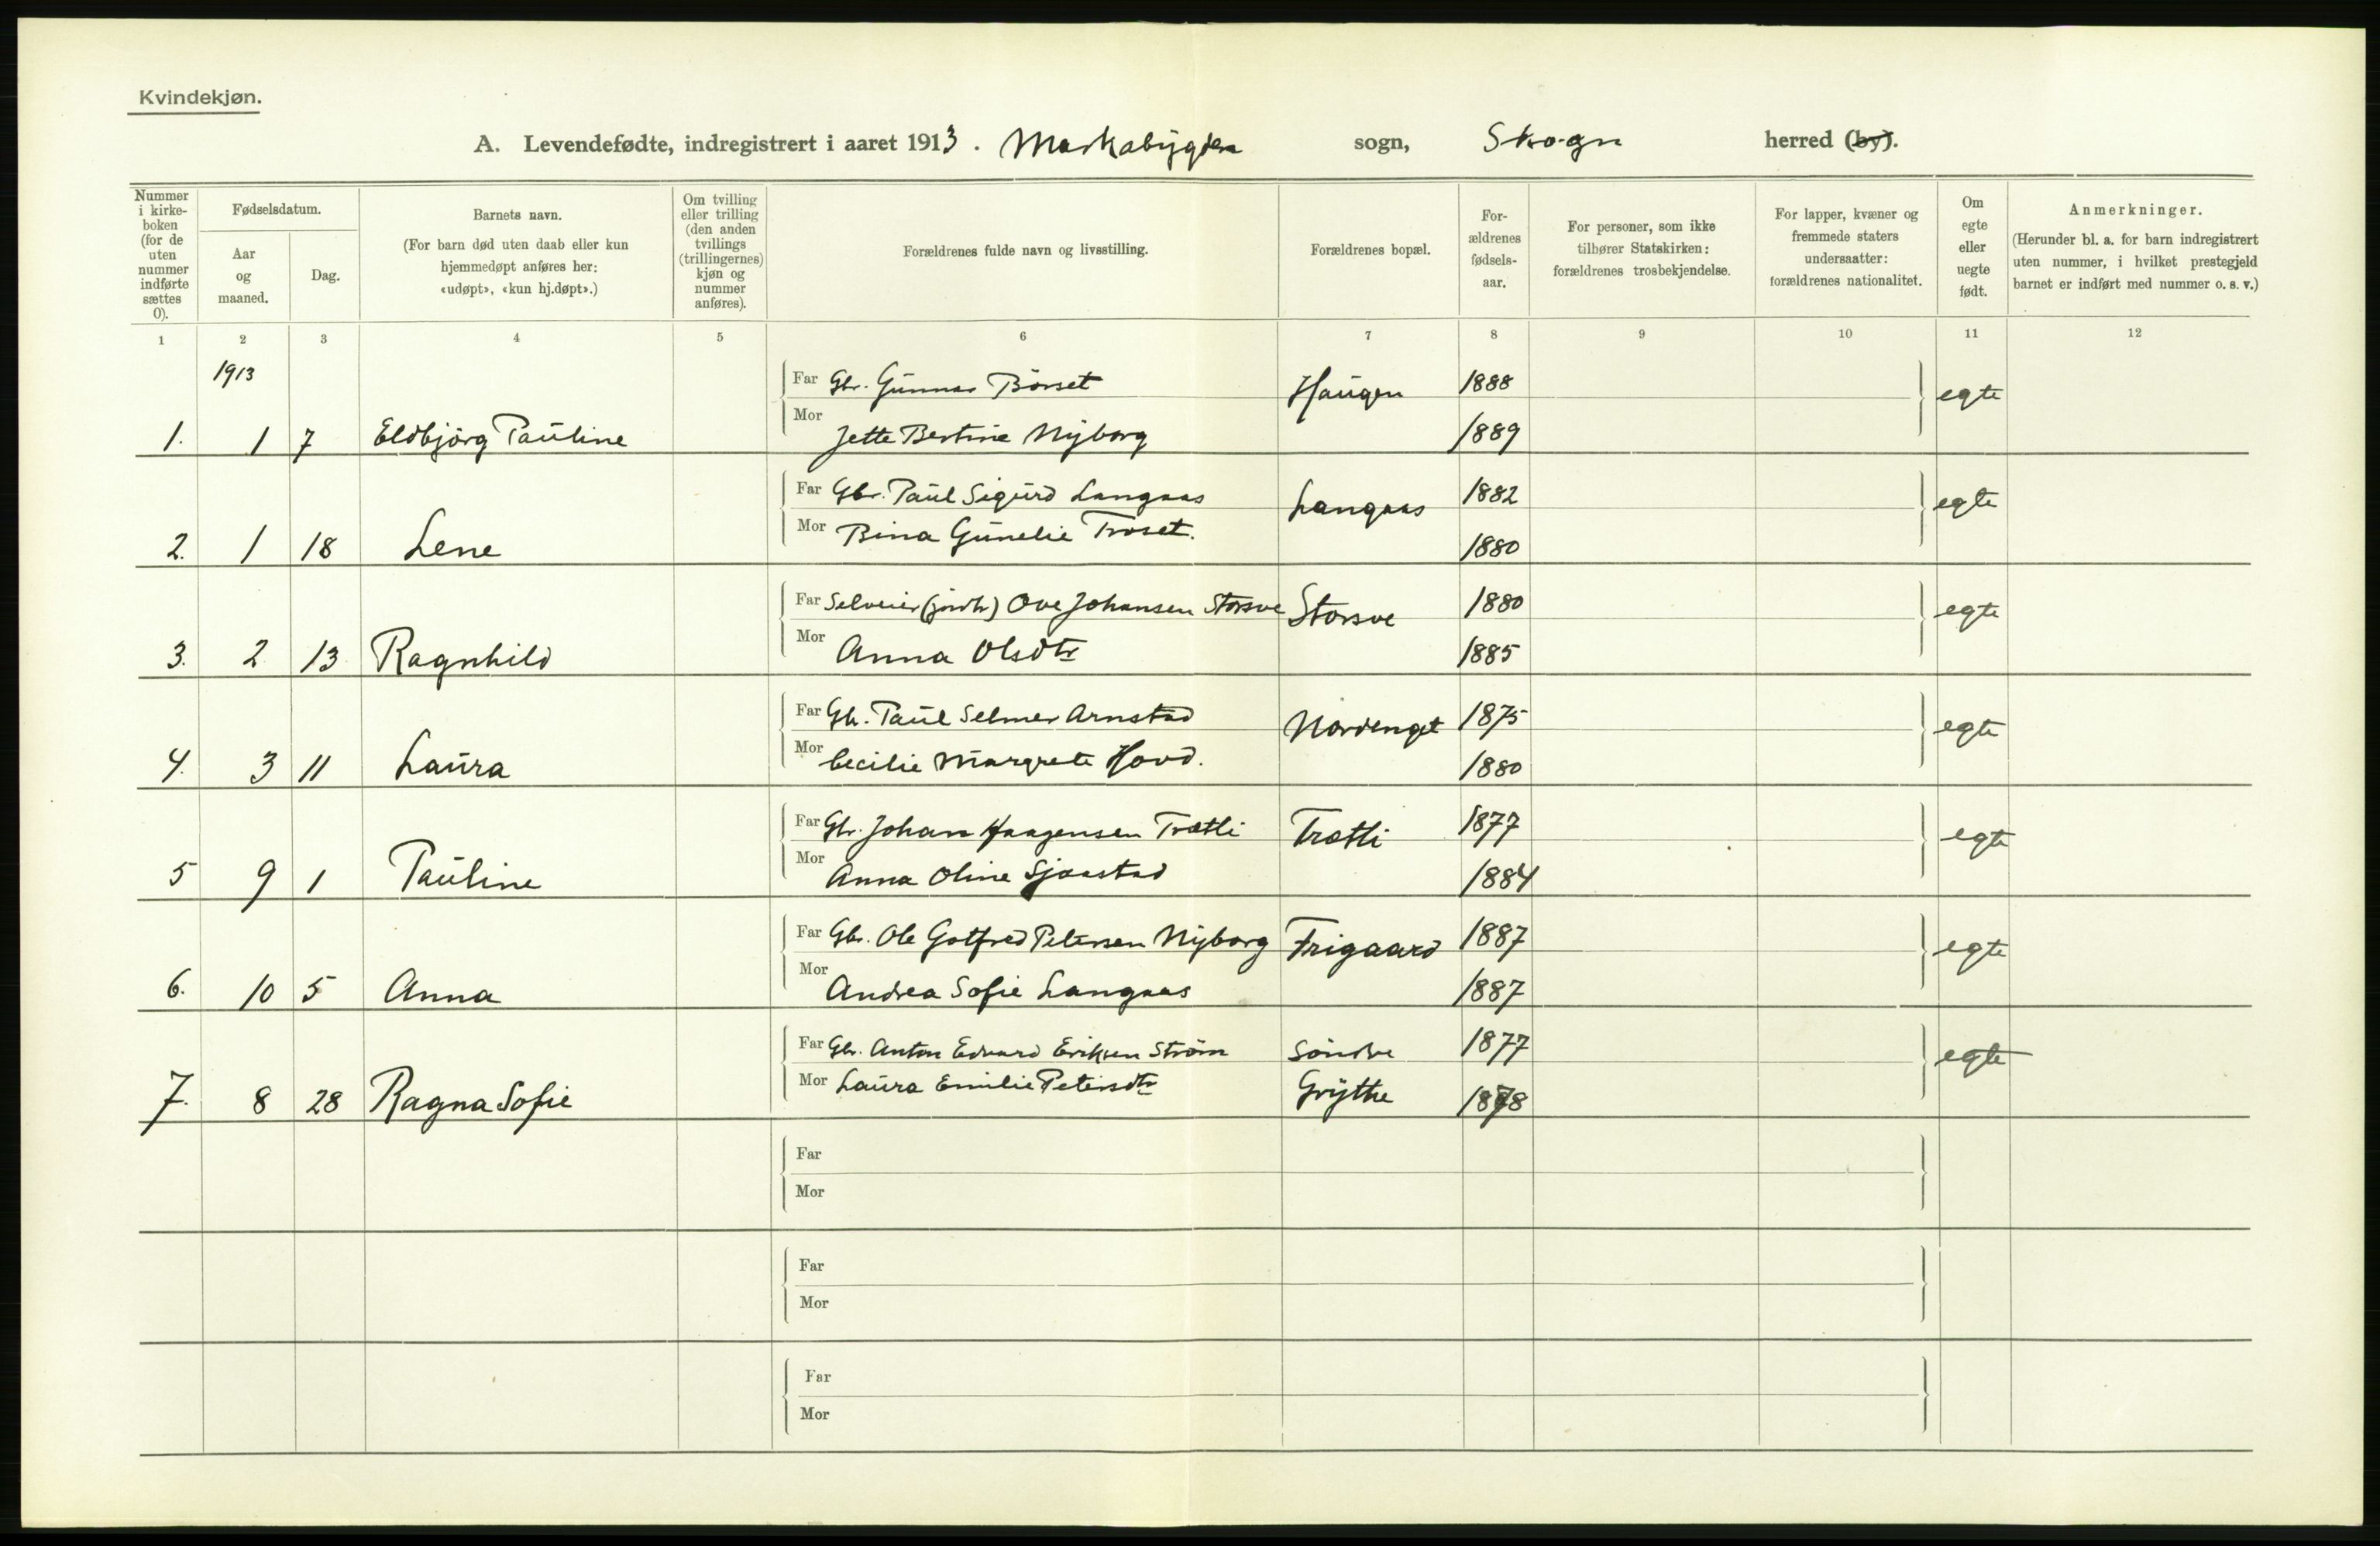 Kvindekjøn.
A. Levendefødte, indregistrert i aaret 1913. Markabygden sogn, Skogn herred (by).
Nummer i kirke- boken (for de uten nummer indførte sættes 0).
Fødselsdatum.
Aar og maaned.
Dag.
Barnets navn.
(For barn død uten daab eller kun hjemmedøpt anføres her: «udøpt», «kun hj.døpt».)
Om tvilling eller trilling (den anden tvillings (trillingernes) kjøn og nummer anføres).
Forældrenes fulde navn og livsstilling.
Forældrenes bopæl.
For- ældrenes fødsels- aar.
For personer, som ikke tilhører Statskirken: forældrenes trosbekjendelse.
For lapper, kvæner og fremmede staters undersaatter: forældrenes nationalitet.
Om egte eller uegte født.
Anmerkninger.
(Herunder bl. a. for barn indregistrert uten nummer, i hvilket prestegjeld barnet er indført med nummer o. s. v.)
1 2 3 4 5 6 7 8 9 10 11 12
1913
Far Gbr. Gunnar Börset Haugen 1888 egte
1. 1 7 Eldbjörg Pauline Mor Jette Bertine Nyborg 1889
Far Gbr. Paul Sigurd Langaas Langaas 1882 egte
2. 1 18 Lene Mor Bina Gunelie Troset. 1880
Far Selveier (jordb) Ove Johansen Storsve Storsve 1880 egte
3. 2 13 Ragnhild Mor Anna Olsdtr 1885
Far Gbr. Paul Selmer Arnstad Nordenget 1875 egte
4. 3 11 Laura Mor Cecilie Margrete Hovd. 1880
Far Gbr. Johan Haagensen Trætli Trætli 1877 egte
5 9 1 Pauline Mor Anna Oline Sjaastad 1884
Far Gbr. Ole Gotfred Petersen Nyborg Frigaard 1887 egte
6. 10 5 Anna Mor Andrea Sofie Langaas 1887
Far Gbr. Anton Edvard Eriksen Ström Söndre 1877 egte
7. 8 28 Ragna Sofie Mor Laura Emilie Petersdtr Grythe 1878
Far
Mor
Far
Mor
Far
Mor